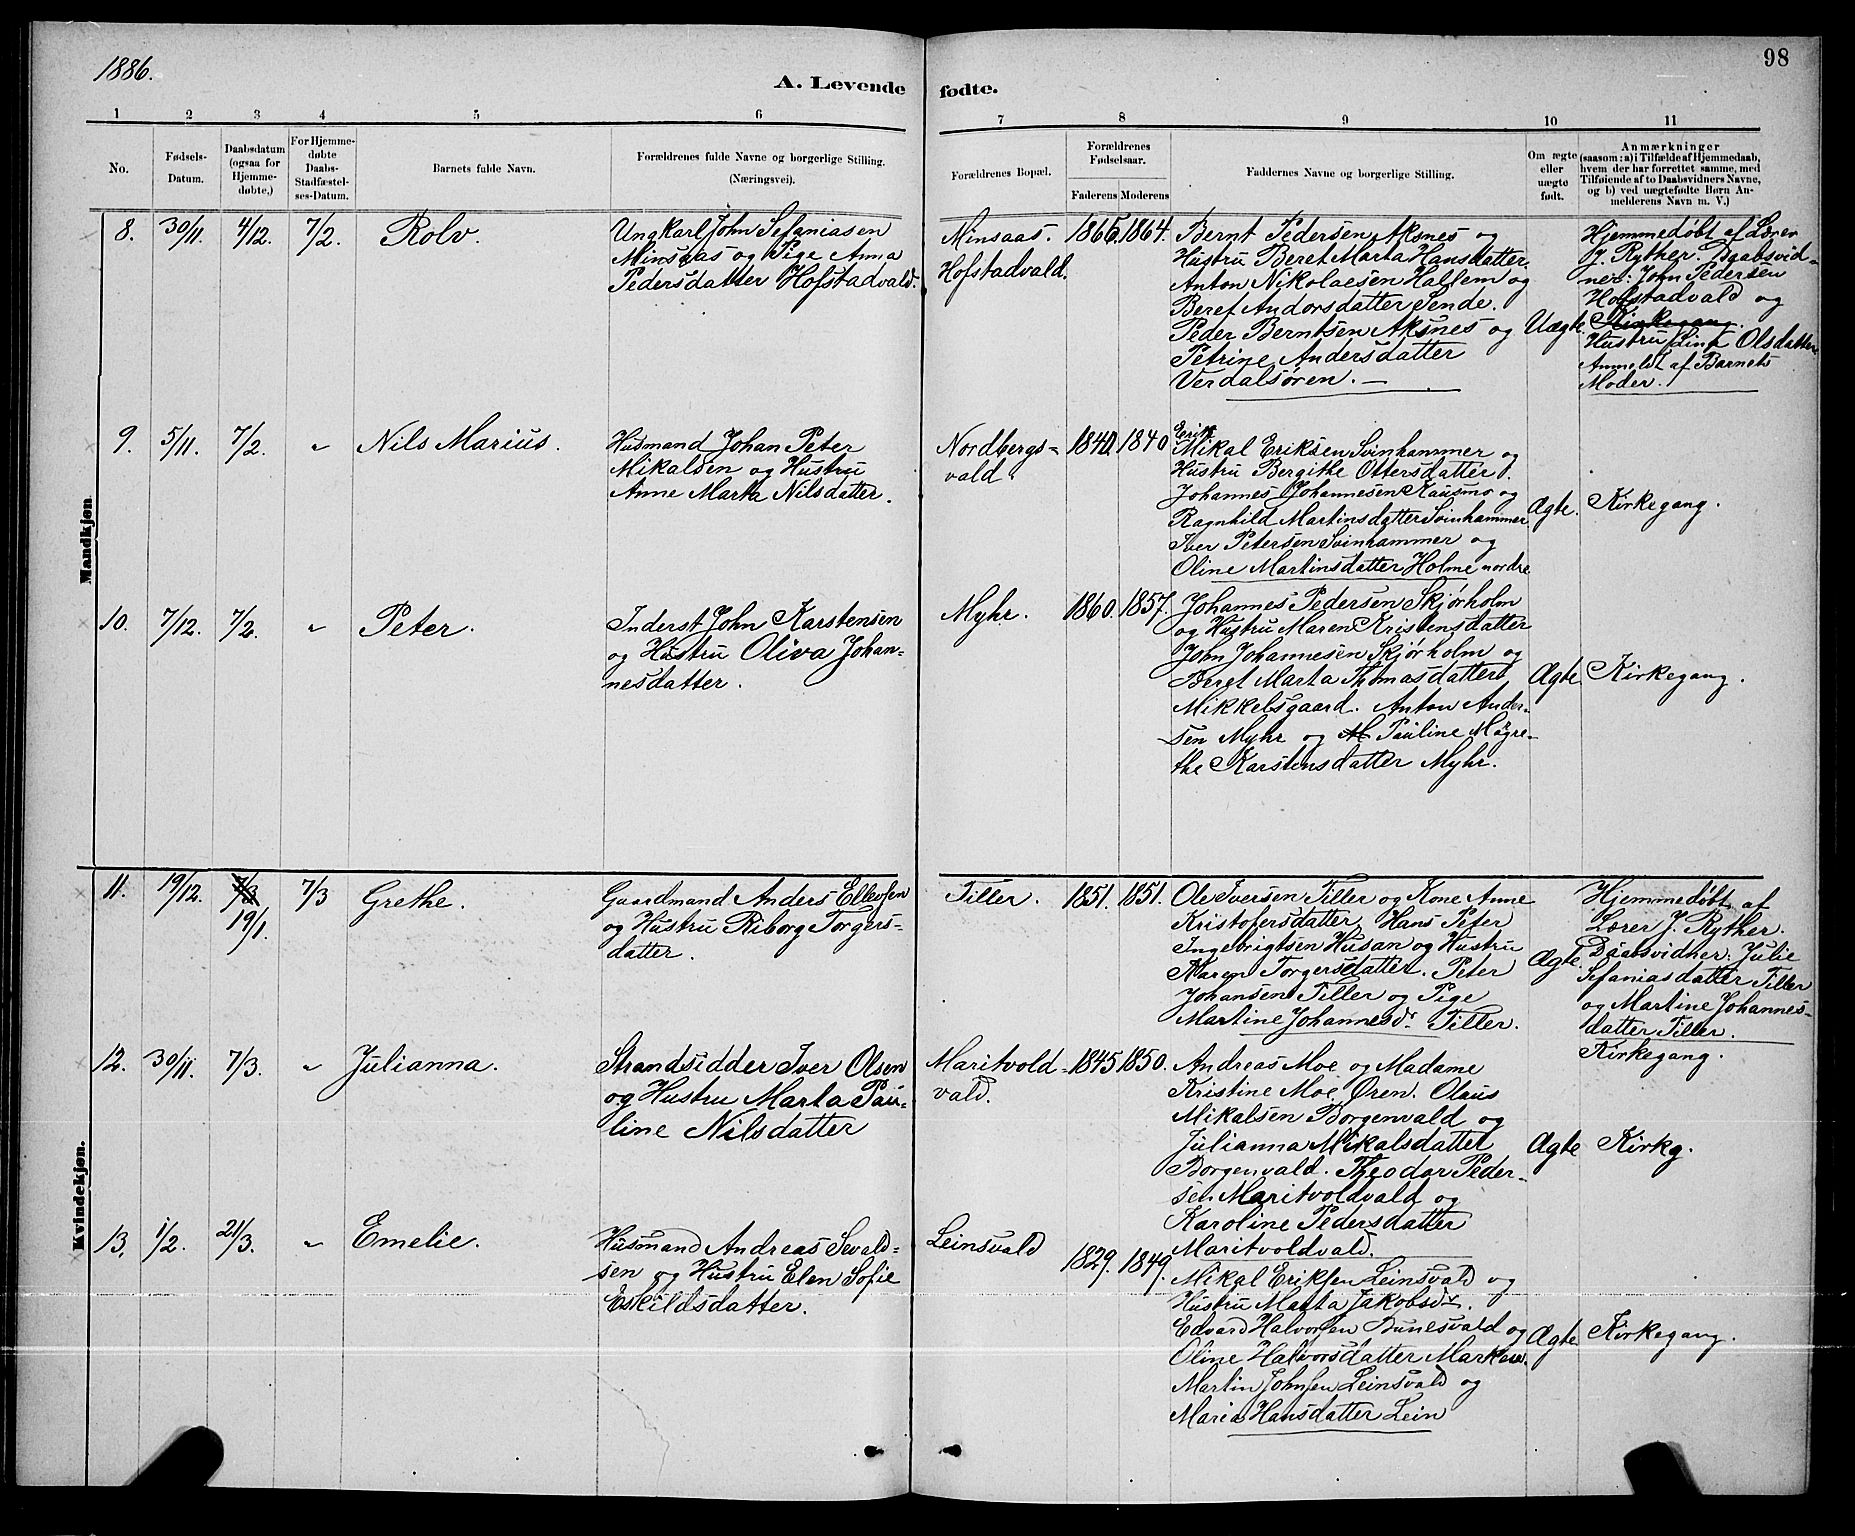 1886.
98
A. Levende fødte.
1 2 3 4 5 6 7 8 9 10 11
No.
Fødsels-
Datum.
Daabsdatum
(ogsaa for
Hjemme-
døbte,)
For Hjemme-
døbte
Daabs-
Stadfæstel-
ses-Datum.
Barnets fulde Navn.
Forældrenes fulde Navne og borgerlige Stilling.
(Næringsvei).
Forældrenes Bopæl.
Forældrenes
Fødselsaar.
Faderens Moderens
Faddernes Navne og borgerlige Stilling.
Om ægte
eller
uægte
født.
Anmærkninger
(saasom: a) i Tilfælde af Hjemmedaab,
hvem der har forrettet samme, med
Tilføiende af to Daabsvidners Navne,
og b) ved uægtefødte Børn An-
melderens Navn m. V.)
Mandkjøn
8. 30/11. 4/12. 7/2. Rolv.
Ungkarl John Sefaniasen
Minsaas og Pige Anna
Pedersdatter Hofstadvald.
Ninsaas.
Hofstadvald.
1865. 1864.
Bernt Pedersen Aksnes og
Hustru Beret Marta Hansdatter.
Anton Nikolaesen Hallem og
Beret Andorsdatter Sende.
Peder Berntsen Aksnes og
Petrine Andersdatter
Verdalsøren. —
Uægte.
Hjemmedøbt af Lærer
J. Ryther. Daabsvid-
ner: John Pedersen
Hofstadvald og
Kirkegang.
Hustru Lina Olsdatter.
Anmeldt af Barnets
Moder.
9. 5/11. 7/2. " Nils Marius.
Husmand Johan Peter
Mikalsen og Hustru
Anne Marta Nilsdatter.
Nordbergs-
vald.
1840. 1840
Erik
Mikal Eriksen Svinhammer og
Hustru Bergithe Ottersdatter.
Johannes Johannesen Kausmo og
Ragnhild Martinsdatter Svinhammer
Iver Petersen Svinhammer og
Oline Martinsdatter Holme nordre
Ægte.
Kirkegang.
10. 7/12. 7/2. " Peter.
Inderst John Karstensen
og Hustru Oliva Johan-
nesdatter.
Myhr.
1860. 1857.
Johannes Pedersen Skjørholm
og Hustru Maren Kristensdatter
John Johannesen Skjørholm og
Beret Marta Thomasdatter
Mikkelsgaard. Anton Ander-
sen Myhr og M Pauline Magre-
the Karstensdatter Myhr.
Ægte
Kirkegang.
Kvindekjøn.
11. 19/12. 7/3 7/3 Grethe.
19/1.
Gaardmand Anders Ellevsen
og Hustru Riborg Torgers-
datter.
Tiller.
1851. 1851.
Ole Iversen Tiller og Kone Anne
Kristofersdatter, Hans Peter
Ingebrigtsen Husan og Hustru
Maren Torgersdatter. Peter
Johansen Tiller og Pige
Martine Johannesdr. Tiller.
Ægte.
Hjemmedøbt af
Lærer J. Ryther.
Daabsvidner: Julie
Sefaniasdatter Tiller
og Martine Johannes-
datter Tiller.
Kirkegang.
12. 30/11. 7/3. " Julianna.
Strandsidder Iver Olsen
og Hustru Marta Pau-
line Nilsdatter
Maritvold-
vald.
1845 1850.
Andreas Moe og Madame
Kristine Moe Øren. Olaus
Mikalsen Borgenvald og
Julianna Mikalsdatter
Borgenvald. Theodor Peder-
sen Maritvoldvald og
Karoline Pedersdatter
Maritvoldvald.
Ægte
Kirkg.
13. 1/2. 21/3. " Emelie.
Husmand Andreas Sevald-
sen og Hustru Elen Sofie
Eskildsdatter.
Leinsvald
1829. 1849.
Mikal Eriksen Leinsvald og
Hustru Marta Jakobsdr.
Edvard Halvorsen Bunesvald og
Oline Halvorsdatter
Martin Johnsen Leinsvald og
Maria Hansdatter Lein
Ægte
Kirkegang.